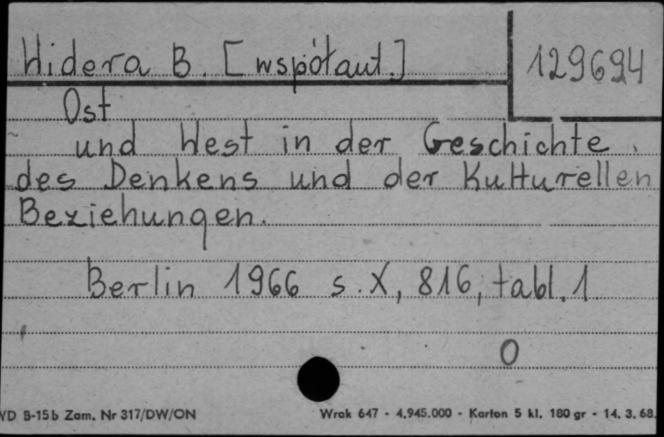 Widera B. [współaut.]
129694
Ost
und West in der Geschichte
des Denkens und der Kulturellen
Beziehungen.
Berlin 1966 s. X, 816, tabl. 1
O
WD B-15b Zam. Nr 317/DW/ON
Wrak 647 - 4.945.000 - Karton 5 kl. 180 gr - 14. 3. 68.